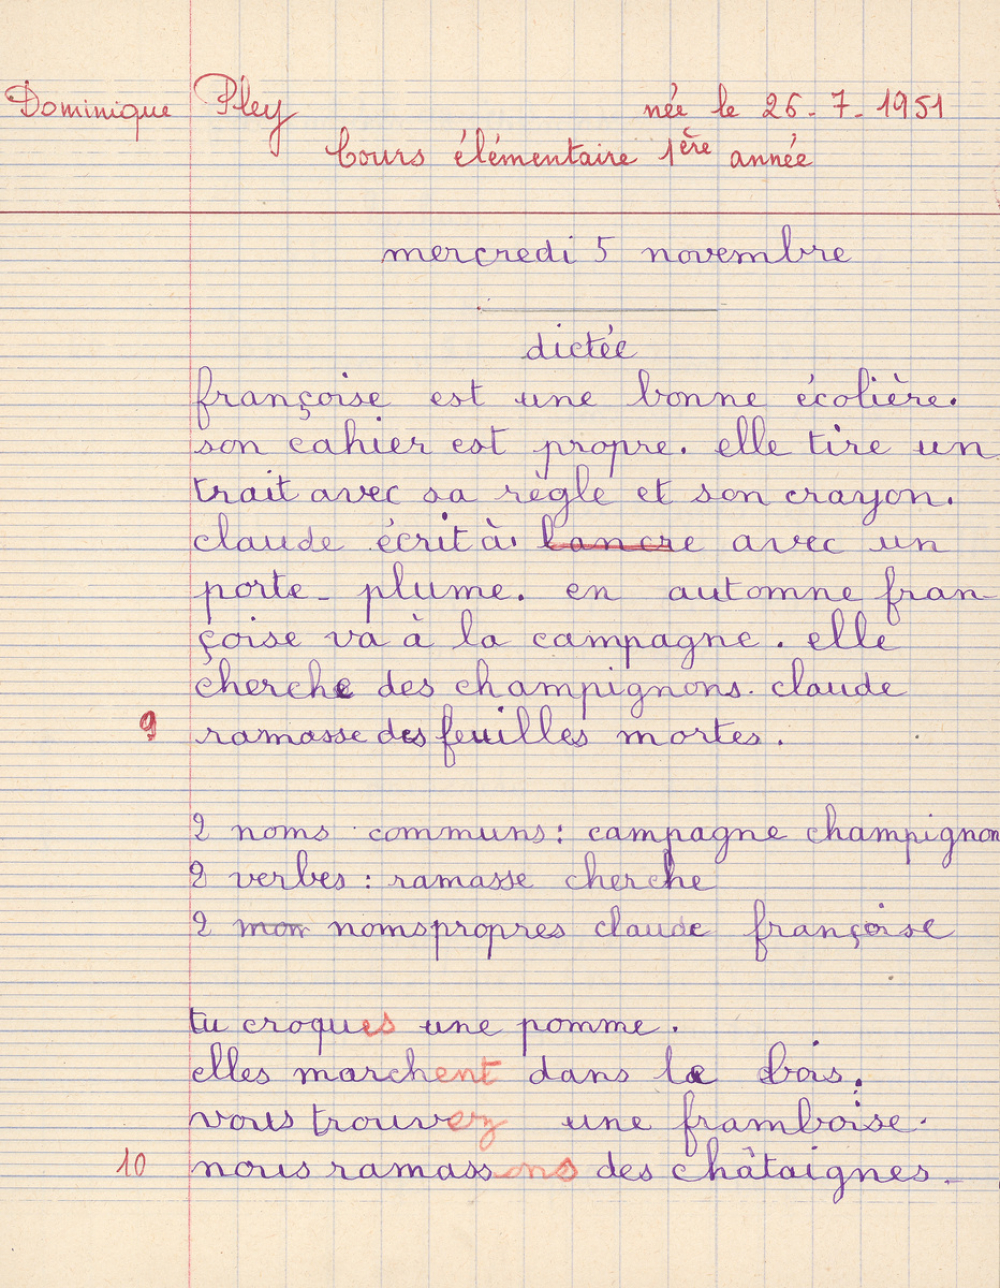 Dominique Pley née le 26-7-1951
Cours élémentaire 1ère année
mercredi 5 novembre
dictée
françoise est une bonne écolière.
son cahier est propre. elle tire un
trait avec sa règle et son crayon.
claude écrit à. lancre avec un
porte-plume. en automne fran-
çoise va à la campagne. elle
cherche des champignons. claude
9 ramasse des feuilles mortes.
2 noms communs : campagne champignon
2 verbes : ramasse cherche
2 mon noms propres claude françoise
tu croques une pomme.
elles marchent dans le bois.
vous trouvez une framboise.
10 nous ramassons des châtaignes.